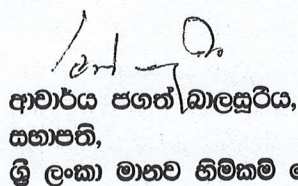 ආචාර්ය ජගත් බාලසූරිය,
සභාපති,
ශ්‍රී ලංකා මානව හිමිකම්